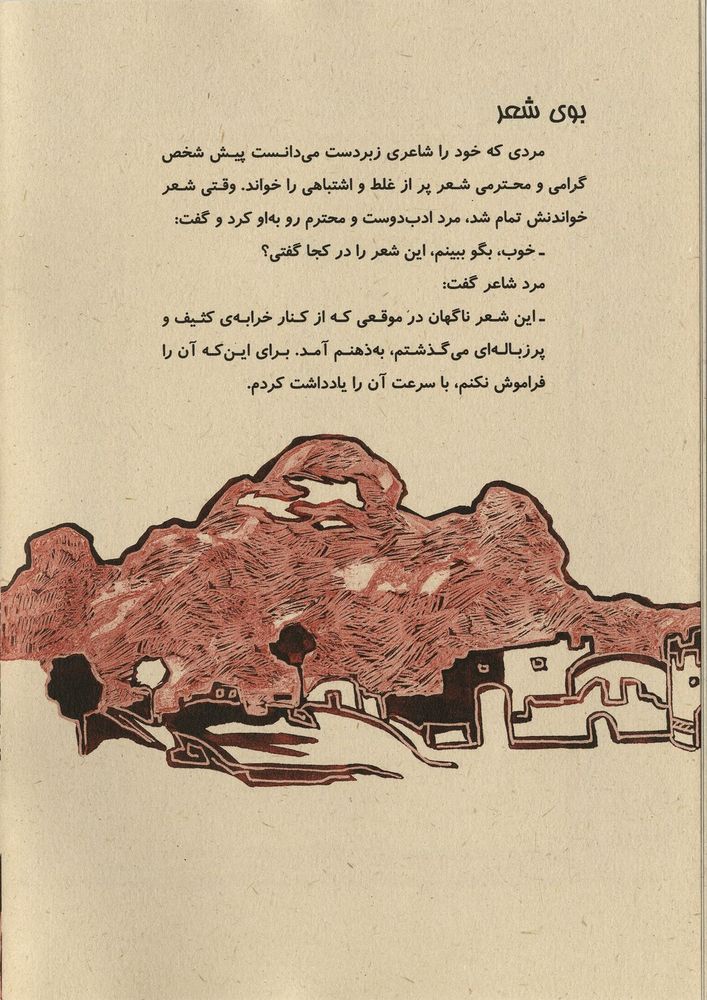 بوی شعر
مردی که خود را شاعری زبردست می‌دانست پیش شخص
گرامی و محترمی شعر پر از غلط و اشتباهی را خواند. وقتی شعر
خواندنش تمام شد، مرد ادب‌دوست و محترم رو به‌او کرد و گفت:
ـ خوب، بگو ببینم، این شعر را در کجا گفتی؟
مرد شاعر گفت:
ـ این شعر ناگهان در موقعی که از کنار خرابه‌ی کثیف و
پرزباله‌ای می‌گذشتم، به‌ذهنم آمد. برای این‌که آن را
فراموش نکنم، با سرعت آن را یادداشت کردم.